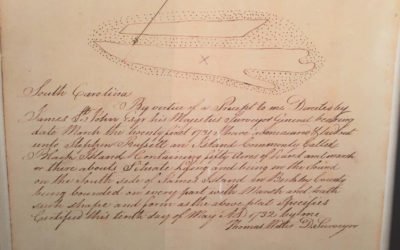 South Carolina
By vertue of a Precept to me Directed by
James St. John Esqr his Majesties Surveyor General bearing
date March the twenty first 1731 I have Admeasured & laid out
unto Stephen Russell an Island Commonly Called
Black Island Containing fifty Acres of hard land and marsh
or there abouts Scituate Lying and being on the Sound
on the South side of James Island in Berkley County
being bounded on every part with Marsh and hath
such shape and form as the above plat Specifies
Certified this tenth day of May AD 1732 by me
Thomas Witter D. Surveyor
X